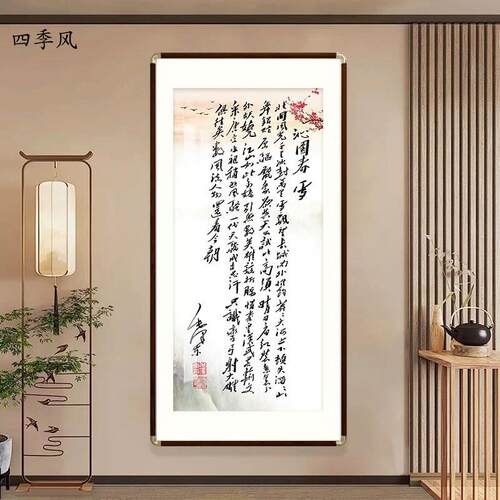 四季风
沁园春 雪
北国风光千里冰封万里雪飘望长城内外惟余莽莽大河上下顿失滔滔山
舞银蛇原驰蜡象欲与天公试比高须晴日看红装素裹分
外妖娆江山如此多娇引无数英雄竞折腰惜秦皇汉武略输文
采唐宗宋祖稍逊风骚一代天骄成吉思汗只识弯弓射大雕
俱往矣数风流人物还看今朝
毛泽东